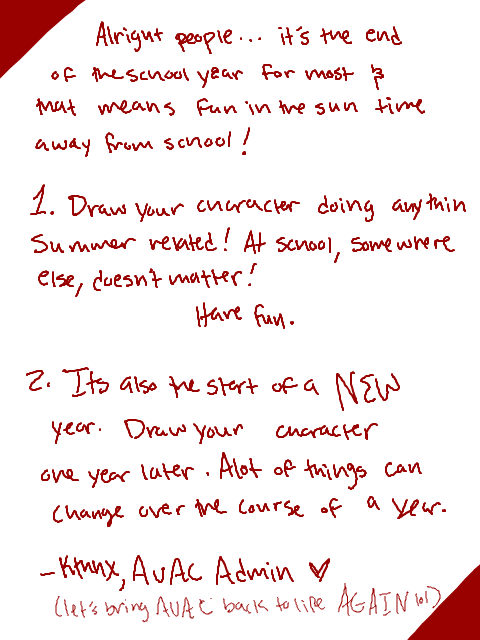 Alright people... it's the end
of the school year for most &
that means fun in the sun time
away from school!
1. Draw your character doing anythin
Summer related! At school, somewhere
else, doesn't matter!
Have fun.
2. Its also the start of a NEW
year. Draw your character
one year later. Alot of things can
change over the course of a year.
- Kthnx, AUAC Admin ♥
(let's bring AUAC back to life AGAIN lol)